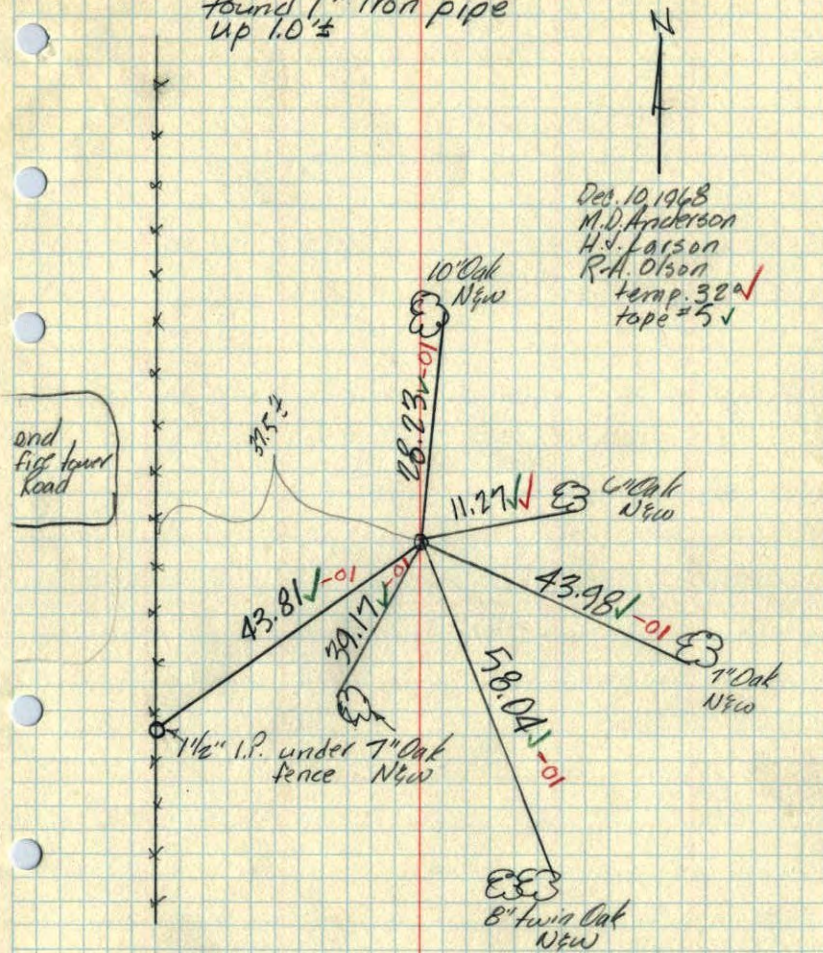 found 1" iron pipe
up 1.0'±
N
Dec. 10, 1968
M.D. Anderson
H.J. Larson
R.A. Olson
temp. 32° ✓
tape #5 ✓
10" Oak
N&W
28.23 ✓ -01
37.5'±
end
fire tower
Road
11.27 ✓✓
6" Oak
N&W
43.81 ✓ -01
39.17 ✓ -01
43.98 ✓ -01
7" Oak
N&W
58.04 ✓ -01
1 1/2" I.P. under
fence
7" Oak
N&W
8" twin Oak
N&W